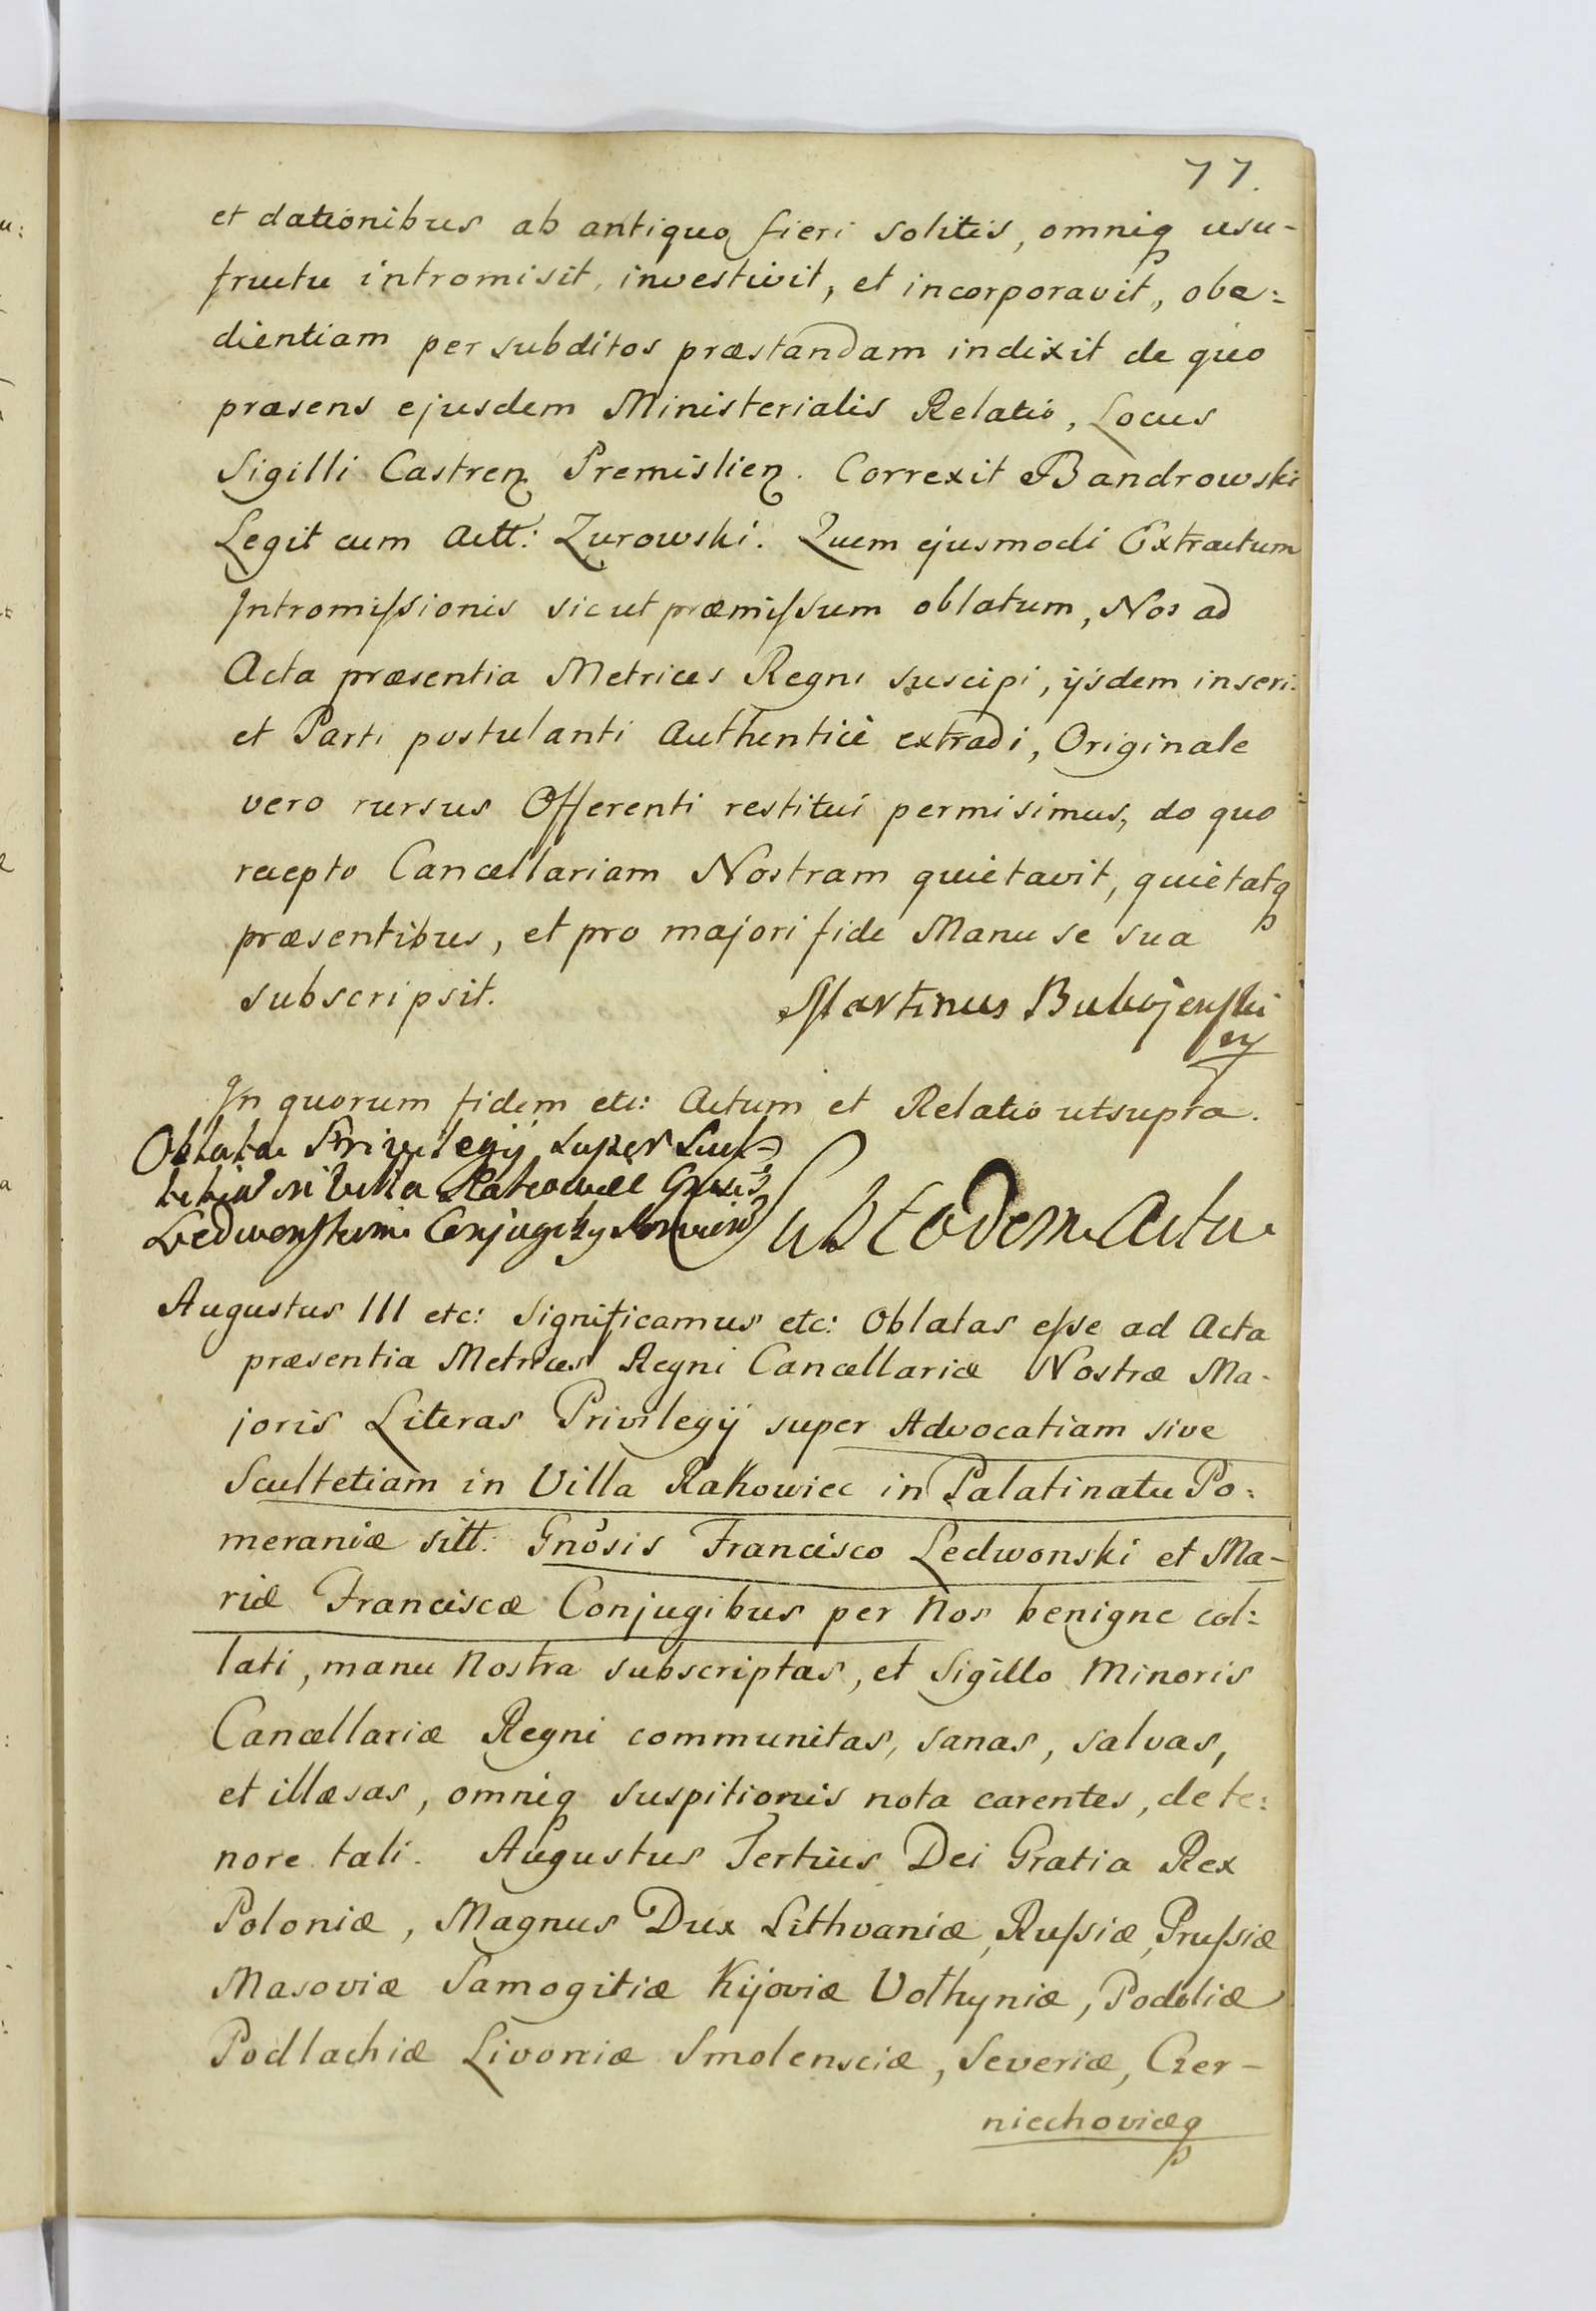 77.
et dationibus ab antiquo fieri solitis, omniq usu-
fructu intromisit, investivit, et incorporavit, obe:
dientiam per subditos præstandam indixit de quo
præsens ejusdem Ministerialis Relatio, Locus
Sigilli Castren Premislien. Correxit Bandrowski
Legit cum Actt: Zurowski. Quem ejusmodi Extractum
Intromissionis sicut præmissum oblatum, Nos ad
Acta præsentia Metrices Regni suscipi, ijsdem inseri
et Parti postulanti Authentice extradi, Originale
vero rursus Offerenti restitui permisimus, do quo
recepto Cancellariam Nostram quietavit, quietatq
præsentibus, et pro majori fide Manu se sua
subscripsit.
Martinus
In quorum fidem etc: Actum et Relatio utsupra.
Oblata Privilegij super Scul=
tetia in Villa Rakowiec
Conjugibq
Sub eodem Actu
Augustus III etc: Significamus etc: Oblatas esse ad Acta
præsentia Metrices Regni Cancellariæ Nostræ Ma-
joris Literas Privilegij super Advocatiam sive
Scultetiam in Villa Rakowiec in Palatinatu Po:
meraniæ sitt. Gnosis Francisco Ledwonski et Ma-
riæ Franciscæ Conjugibus per Nos benigne col:
lati, manu Nostra subscriptas, et Sigillo Minoris
Cancellariæ Regni communitas, sanas, salvas,
et illæsas, omniq suspitionis nota carentes, de te:
nore tali. Augustus Tertius Dei Gratia Rex
Poloniæ, Magnus Dux Lithvaniæ, Russiæ, Prussiæ
Masoviæ Samogitiæ Kijoviæ Volhyniæ, Podoliæ
Podlachiæ Livoniæ Smolensciæ, Severiæ, Czer-
niechoviæq